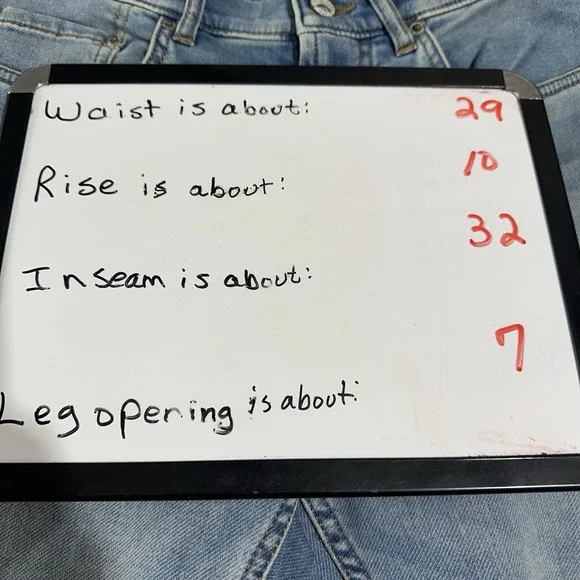 Waist is about: 29
Rise is about: 10
Inseam is about: 32
Leg opening is about: 7